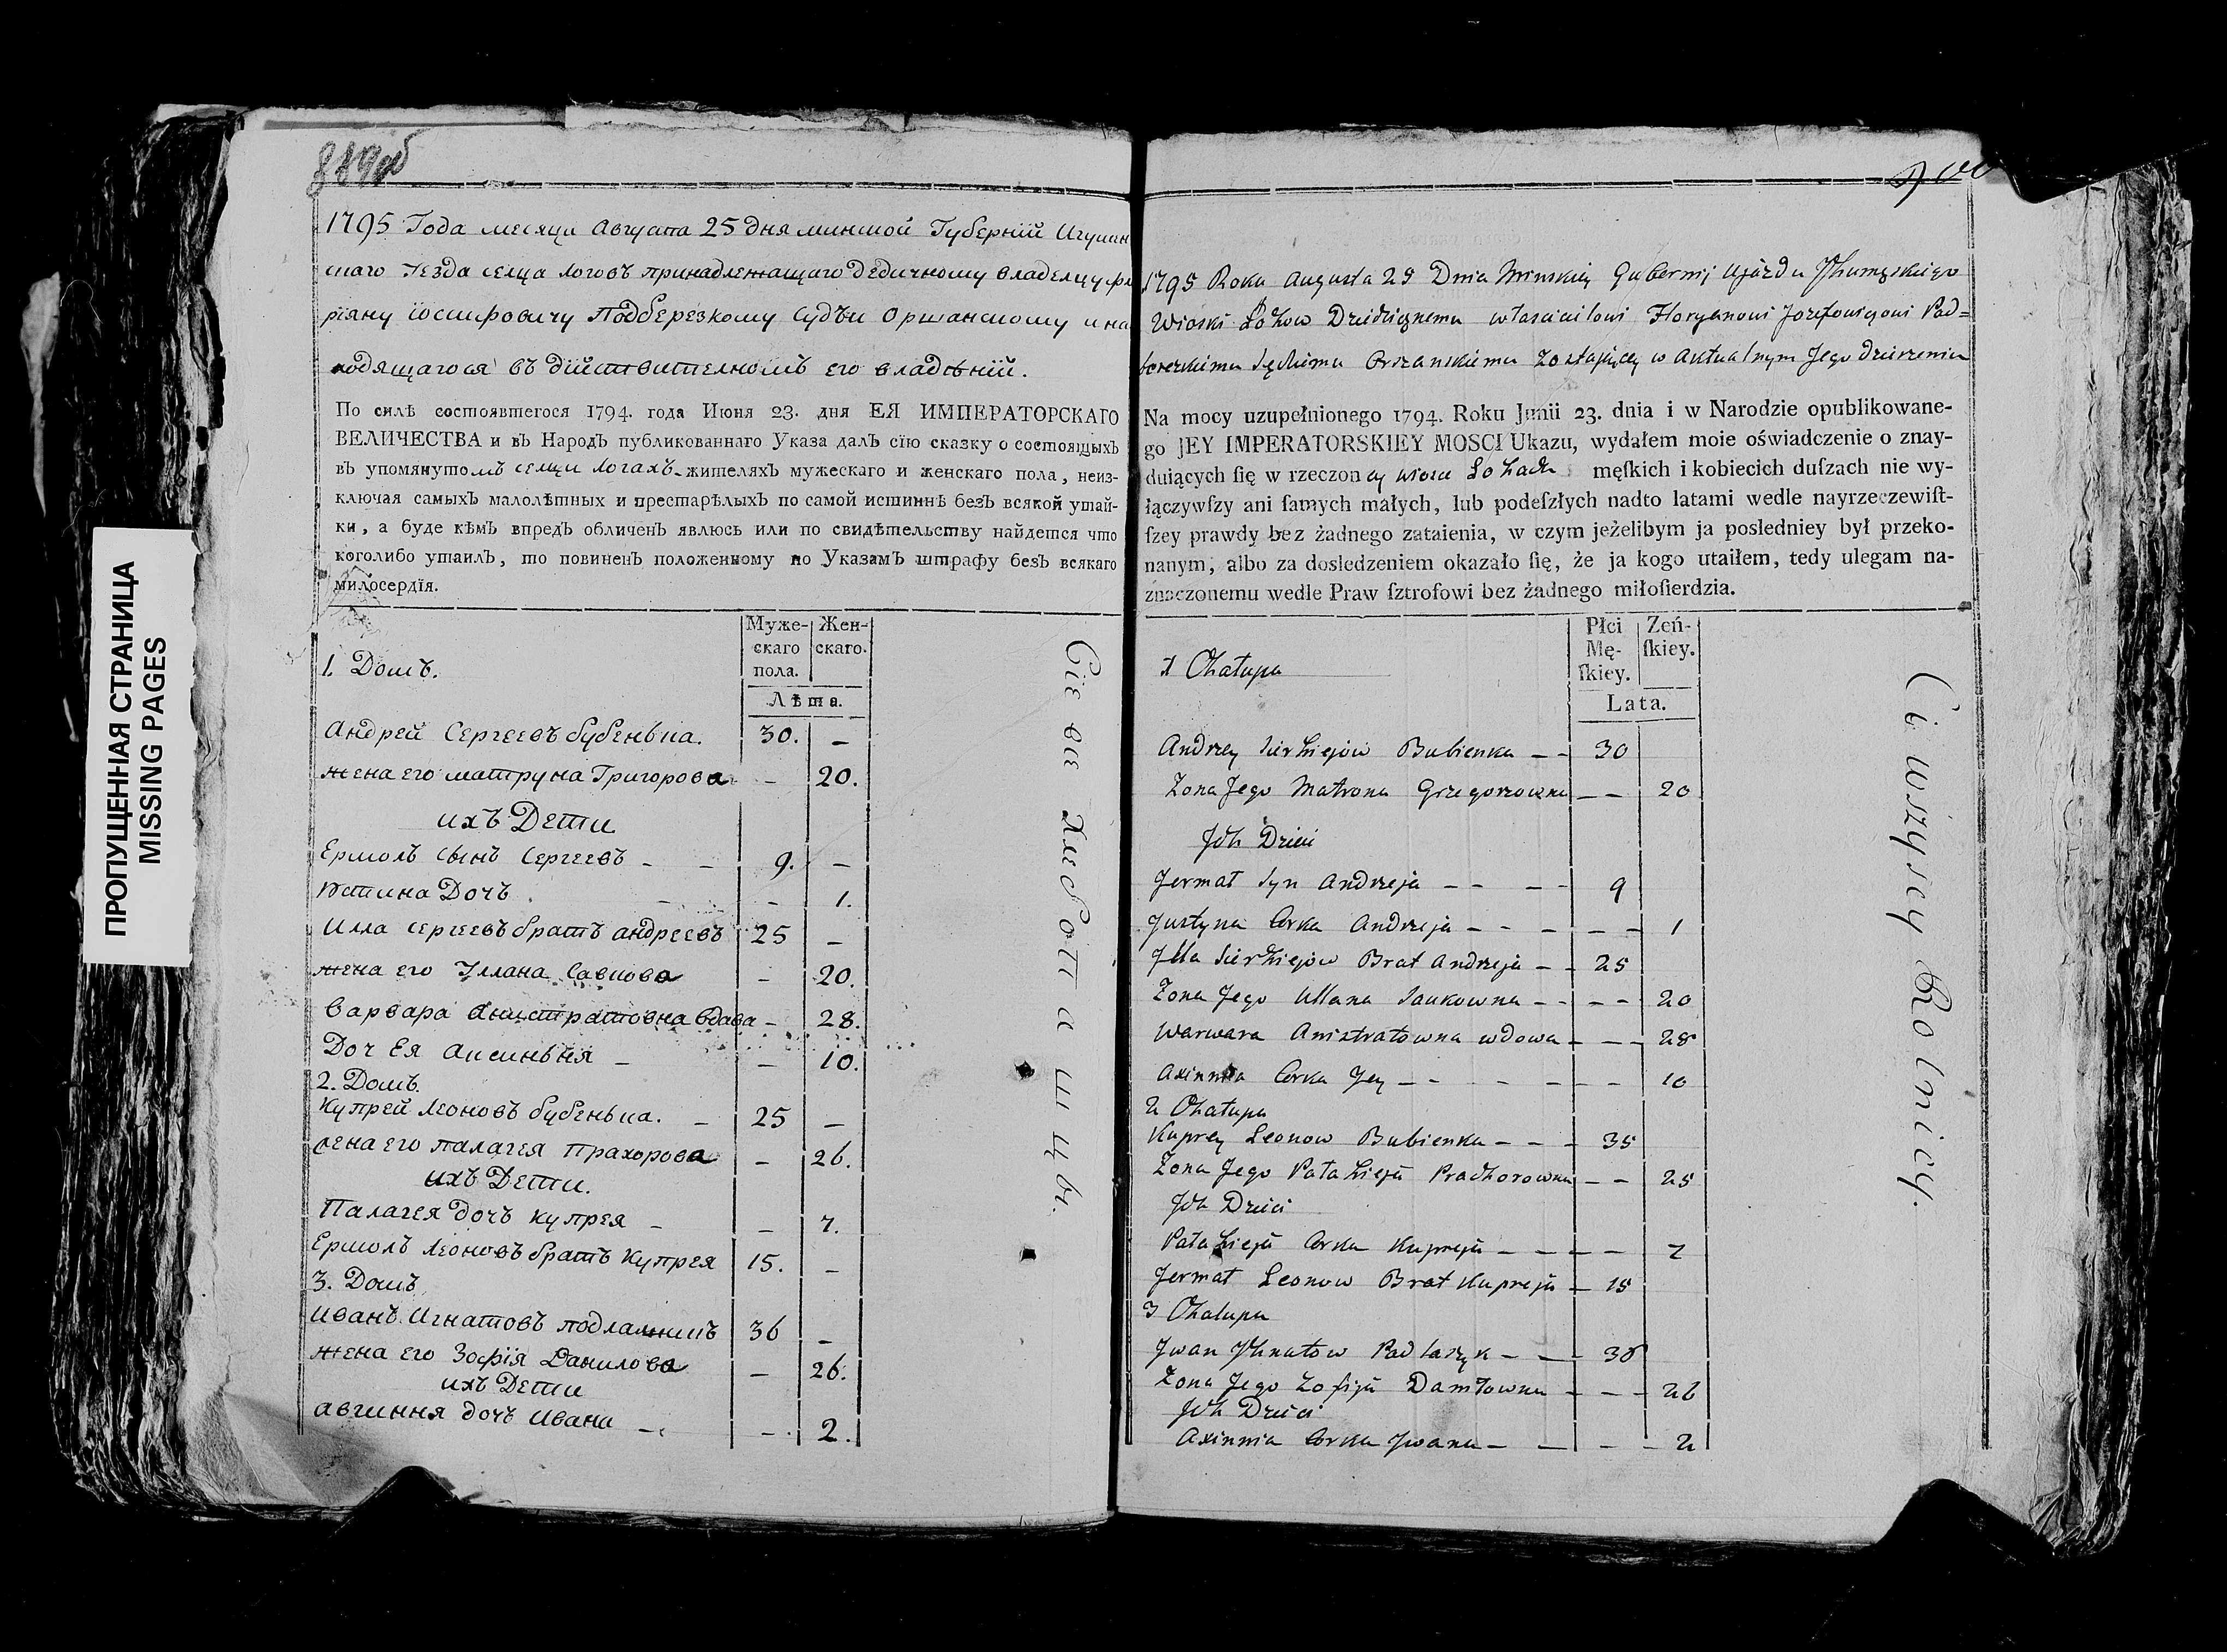 ПРОПУЩЕННАЯ СТРАНИЦА
MISSING PAGES
889об
1795 Года месяца Августа 25 дня минской Губернїй Игумен
скаго уезда селца логовъ принадлежащаго Дедичному владелцу фло
рїяну їосифовичу Подберезкому Судъи Оршанскому и на
ходящагося въ дїйствителномъ его владѣнїй.
По силѣ состоявшегося 1794. года Июня 23. дня ЕЯ ИМПЕРАТОРСКАГО
ВЕЛИЧЕСТВА и въ Народъ публикованнаго Указа далъ сїю сказку о состоящыхъ
въ упомянутомъ селци логахъ жителяхъ мужескаго и женскаго пола, неиз-
ключая самыхъ малолѣтныхъ и престарѣлыхъ по самой истиннѣ безъ всякой утай-
ки, а буде кѣмъ впредъ обличенъ явлюсь или по свидѣтельству найдется что
коголибо утаилъ, то повиненъ положенному по Указамъ штрафу безъ всякаго
милосердїя.
Муже-скаго пола. Жен-скаго.
Лѣта.
1. Домъ.
Андрей Сергеевъ бубенька. 30. –
жена его матруна Григорова – 20.
ихъ Дети
Ермолъ сынъ Сергеевъ – – 9. –
Юстина Дочъ – – 1.
Илла сергеевъ братъ андреевъ 25 –
жена его Уллана Савкова – 20.
Варвара Анистратовна вдава – 28.
Доч Ея Аксинья – – 10.
2. Домъ.
Купрей Леоновъ бубенька. – 25 –
жена его палагея Прахорова – 26.
ихъ Дети.
Палагея дочъ купрея – – 7.
Ермолъ Леоновъ братъ купрея 15. –
3. Домъ
Иванъ Игнатовъ подлажникъ 36 –
жена его Зофїя Данилова – 26.
ихъ Дети
авгиння дочъ Ивана – – 2.
Сїе все хлебопашцы.
1795 Roku Augusta 25 Dnia Minskiey Gubernij Ujazdu Jhumęskiego
Wioski Łohow Dziedzicznemu właścicilowi Floryanowi Jozefowiczowi Pad=
berezkiemu Sędziemu Orszanskiemu zostającey w Aktualnym Jego dzierzeniu
Na mocy uzupełnionego 1794. Roku Junii 23. dnia i w Narodzie opublikowane-
go JEY IMPERATORSKIEY MOSCI Ukazu, wydałem moie oświadczenie o znay-
duiących ſię w rzeczoney wiosce Łohach męſkich i kobiecich duſzach nie wy-
łączywſzy ani ſamych małych, lub podeſzłych nadto latami wedle nayrzeczewiſt-
ſzey prawdy bez żadnego zataienia, w czym jeżelibym ja posledniey był przeko-
nanym, albo za dosledzeniem okazało ſię, że ja kogo utaiłem, tedy ulegam na-
znaczonemu wedle Praw ſztrofowi bez żadnego miłoſierdzia.
Płci Mę-ſkiey. Zeń-ſkiey.
Lata.
1 Chałupa
Andrzey Sierhiejow Bubienka – – 30
Zona Jego Matrona Grzegorzowna – – 20
Jch Dzieci
Jermał Syn Andrzeja – – – – 9
Justyna Corka Andrzeja – – – – – 1
Jlla Sierhiejow Brat Andrzeja – – 25
Zona Jego Ullana Saukowna – – – – 20
Warwara Anistratowna wdowa – – – 28
Axinnia Corka Jey – – – – – – 10
2 Chałupa
Kuprey Leonow Bubienka – – – 35
Zona Jego Pałahieja Prachorowna – – 25
Jch Dzieci
Pałahieja Corka Kupreja – – – – 7
Jermał Leonow Brat Kupreja – 15
3 Chalupa
Jwan Jhnatow Padłaszyk – – – 36
Zona Jego Zofija Daniłowna – – – 26
Jch Dzieci
Axinnia Corka Jwana – – – – 2
Ci wszyscy Rolnicy.